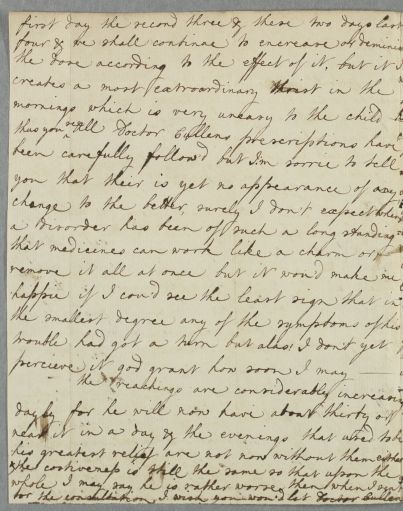 first day the second three & these two days last
four & we shall continue to encrease or deminis
the dose according to the effect of it, but it
creates a most extroardinary thirst in the
mornings which is very uneasy to the child
thus you see all Doctor Cullens prescriptions have
been carefully follow'd but I'm sorrie to tell
you that their is yet no appearance of any
change to the better, surely I don't expect when
a disorder has been of such a long standing
that medicines can work like a charm or
remove it all at once but it wou'd make me
happie if I cou'd see the least sign that in
the smallest degree any of the symptoms of his
trouble had got a turn but alas! I don't yet
percieve it god grant how soon I may
the reachings are considerably increasing
dayly for he will now have about thirty or
near it in a day & the evenings that used to be
his greatest relief are not now without them
& the costiveness is still the same so that upon the
whole I may say he is rather worse then when I
for the consultation I wish you wou'd let Doctor Cullen